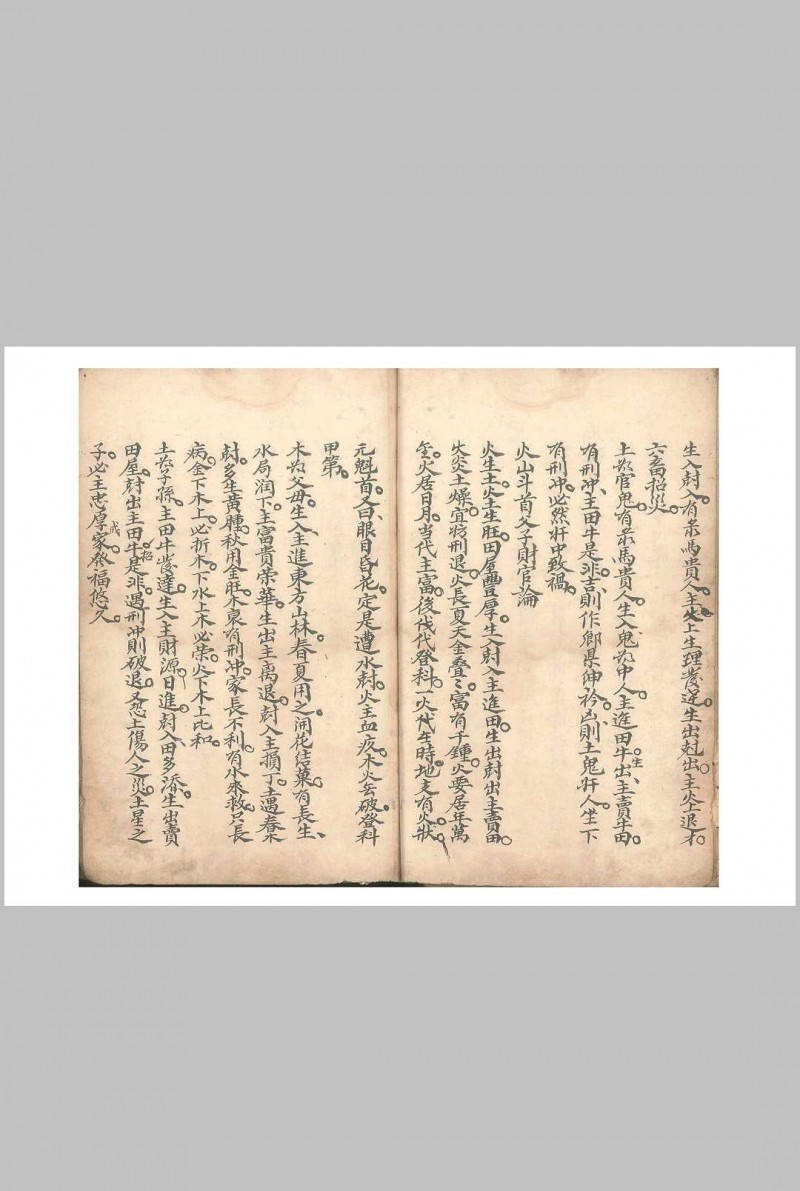 生入尅入有祟馬貴人。主火上生理發達。生出尅出。主火上退才。
六畜招災。
土為官鬼。有祟馬貴人。生入鬼為中人。主進田牛。生出主賣牛田。
有刑冲。主田牛是非。吉則作鄉県紳衿。凶則土鬼奸人。坐下
有刑冲。必然奸中致禍。
火山斗首父子財官論
火生土。火土生旺田屋豊厚。生入尅入主進田。生出尅出主賣田。
火炎土燥宜防刑退。火長夏天金叠〻。富有千鍾。火要居年萬
全。火居日月。当代主富。後伐代登科。一火代生時。地支有火狀
元魁首。又曰眼目昏花。定是遭水尅。火主血疾。木火去破。登科
甲第。
木為父母。生入主進東方山林。春夏用之。開花结菓。有長生、
水局润下。主富貴荣華。生出主离退。尅入主損丁。土遇春木
尅。多生黄腫。秋用金旺。木衰有刑冲。家長不利。有水來救。只長
病。金下木上。必折木。下水上木必荣。火下木上比和。
土為子孫。主田牛發達。生入主財源日進。尅入田多添。生出賣
田屋。尅出主田牛招是非。遇刑冲則破退。又恐土傷人之災。土星之
子。必主忠厚成家。發福悠久。